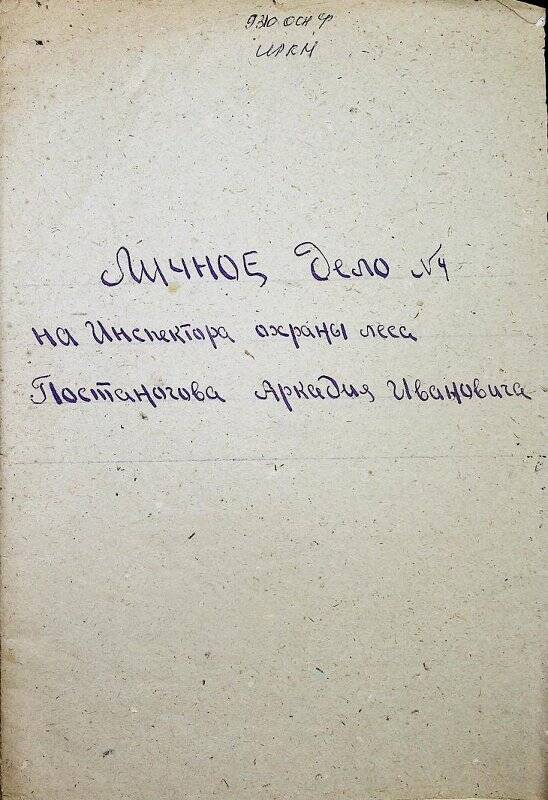 920 осн ф
ИРКМ
Личное Дело №4
на Инспектора охраны леса
Постаногова Аркадия Ивановича